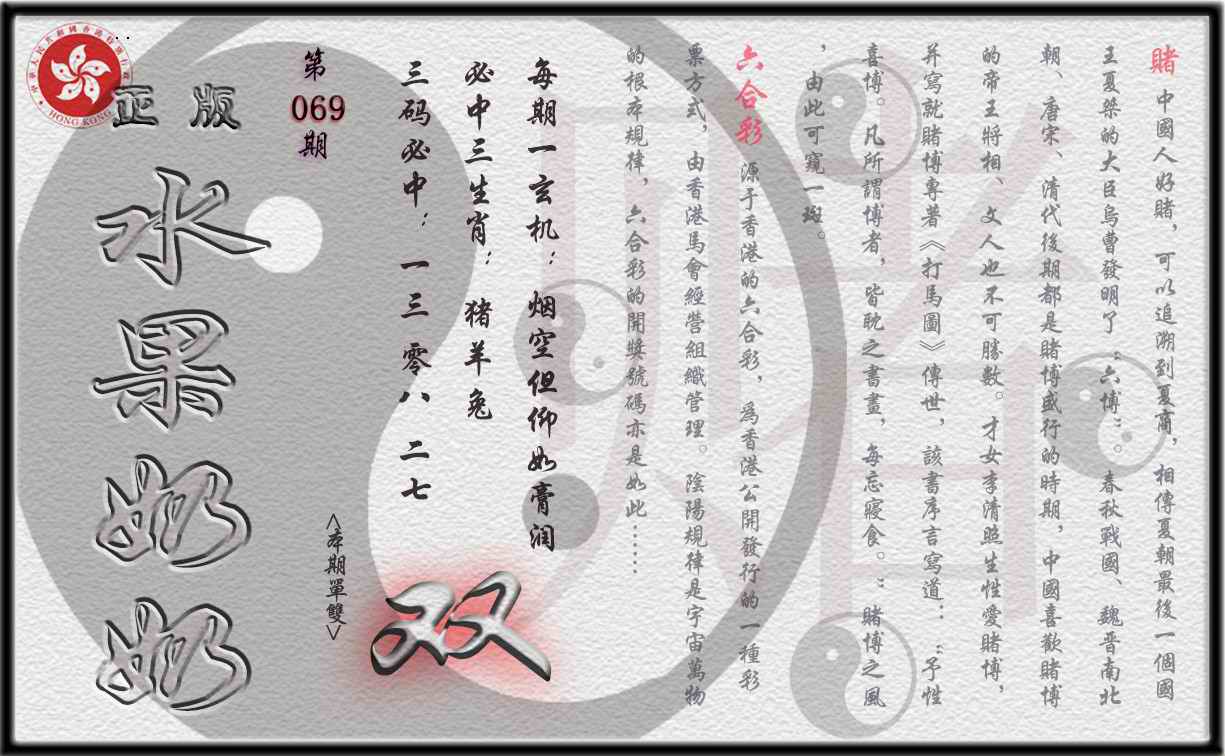 賭 中國人好賭，可以追溯到夏商，相傳夏朝最後一個國
王夏桀的大臣烏曹發明了“六博”。春秋戰國、魏晋南北
朝、唐宋、清代後期都是賭博盛行的時期，中國喜歡賭博
的帝王將相、文人也不可勝數。才女李清照生性愛賭博，
并寫就賭博專著《打馬圖》傳世，該書序言寫道：“予性
喜博。凡所謂博者，皆耽之書晝，每忘寢食。”賭博之風
，由此可窺一斑。
六合彩 源于香港的六合彩，爲香港公開發行的一種彩
票方式，由香港馬會經營組織管理。陰陽規律是宇宙萬物
的根本規律，六合彩的開獎號碼亦是如此……
每期一玄机：烟空但仰如膏润
必中三生肖：猪羊兔
三码必中：一三 零八 二七
双
<本期單雙>
第
069
期
正版
水果奶奶
中華人民共和國香港特別行政區
HONG KONG